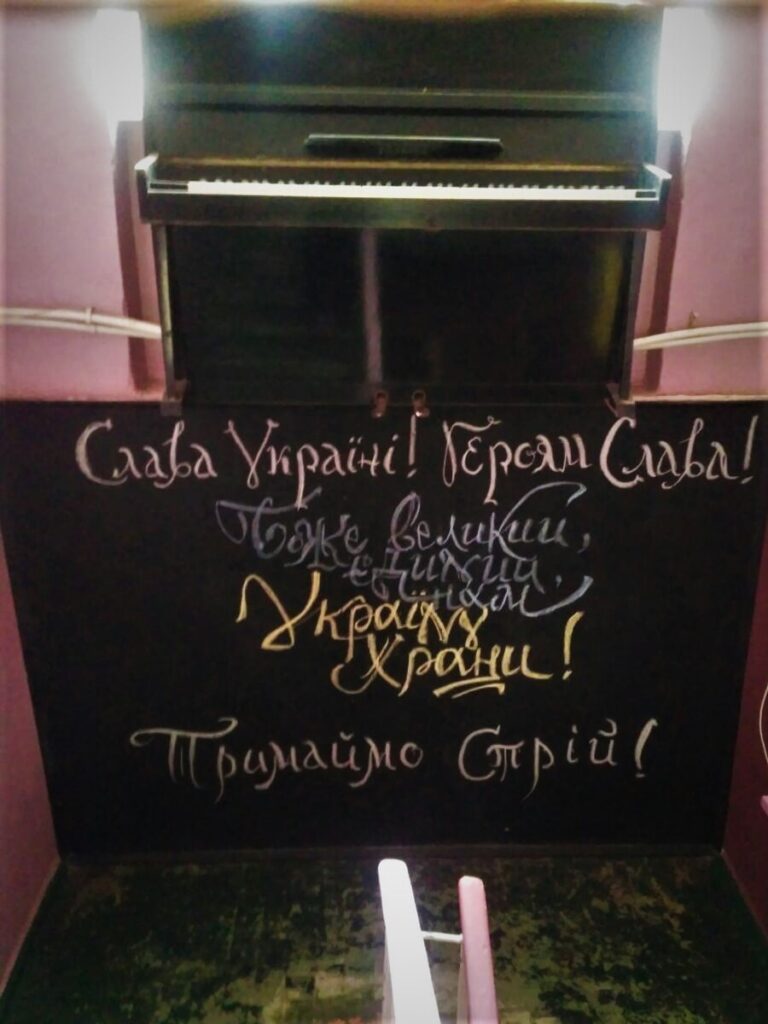 Слава Україні! Героям Слава!
Боже великий,
єдиний,
нам
Україну
Храни!
Тримаймо Стрій!